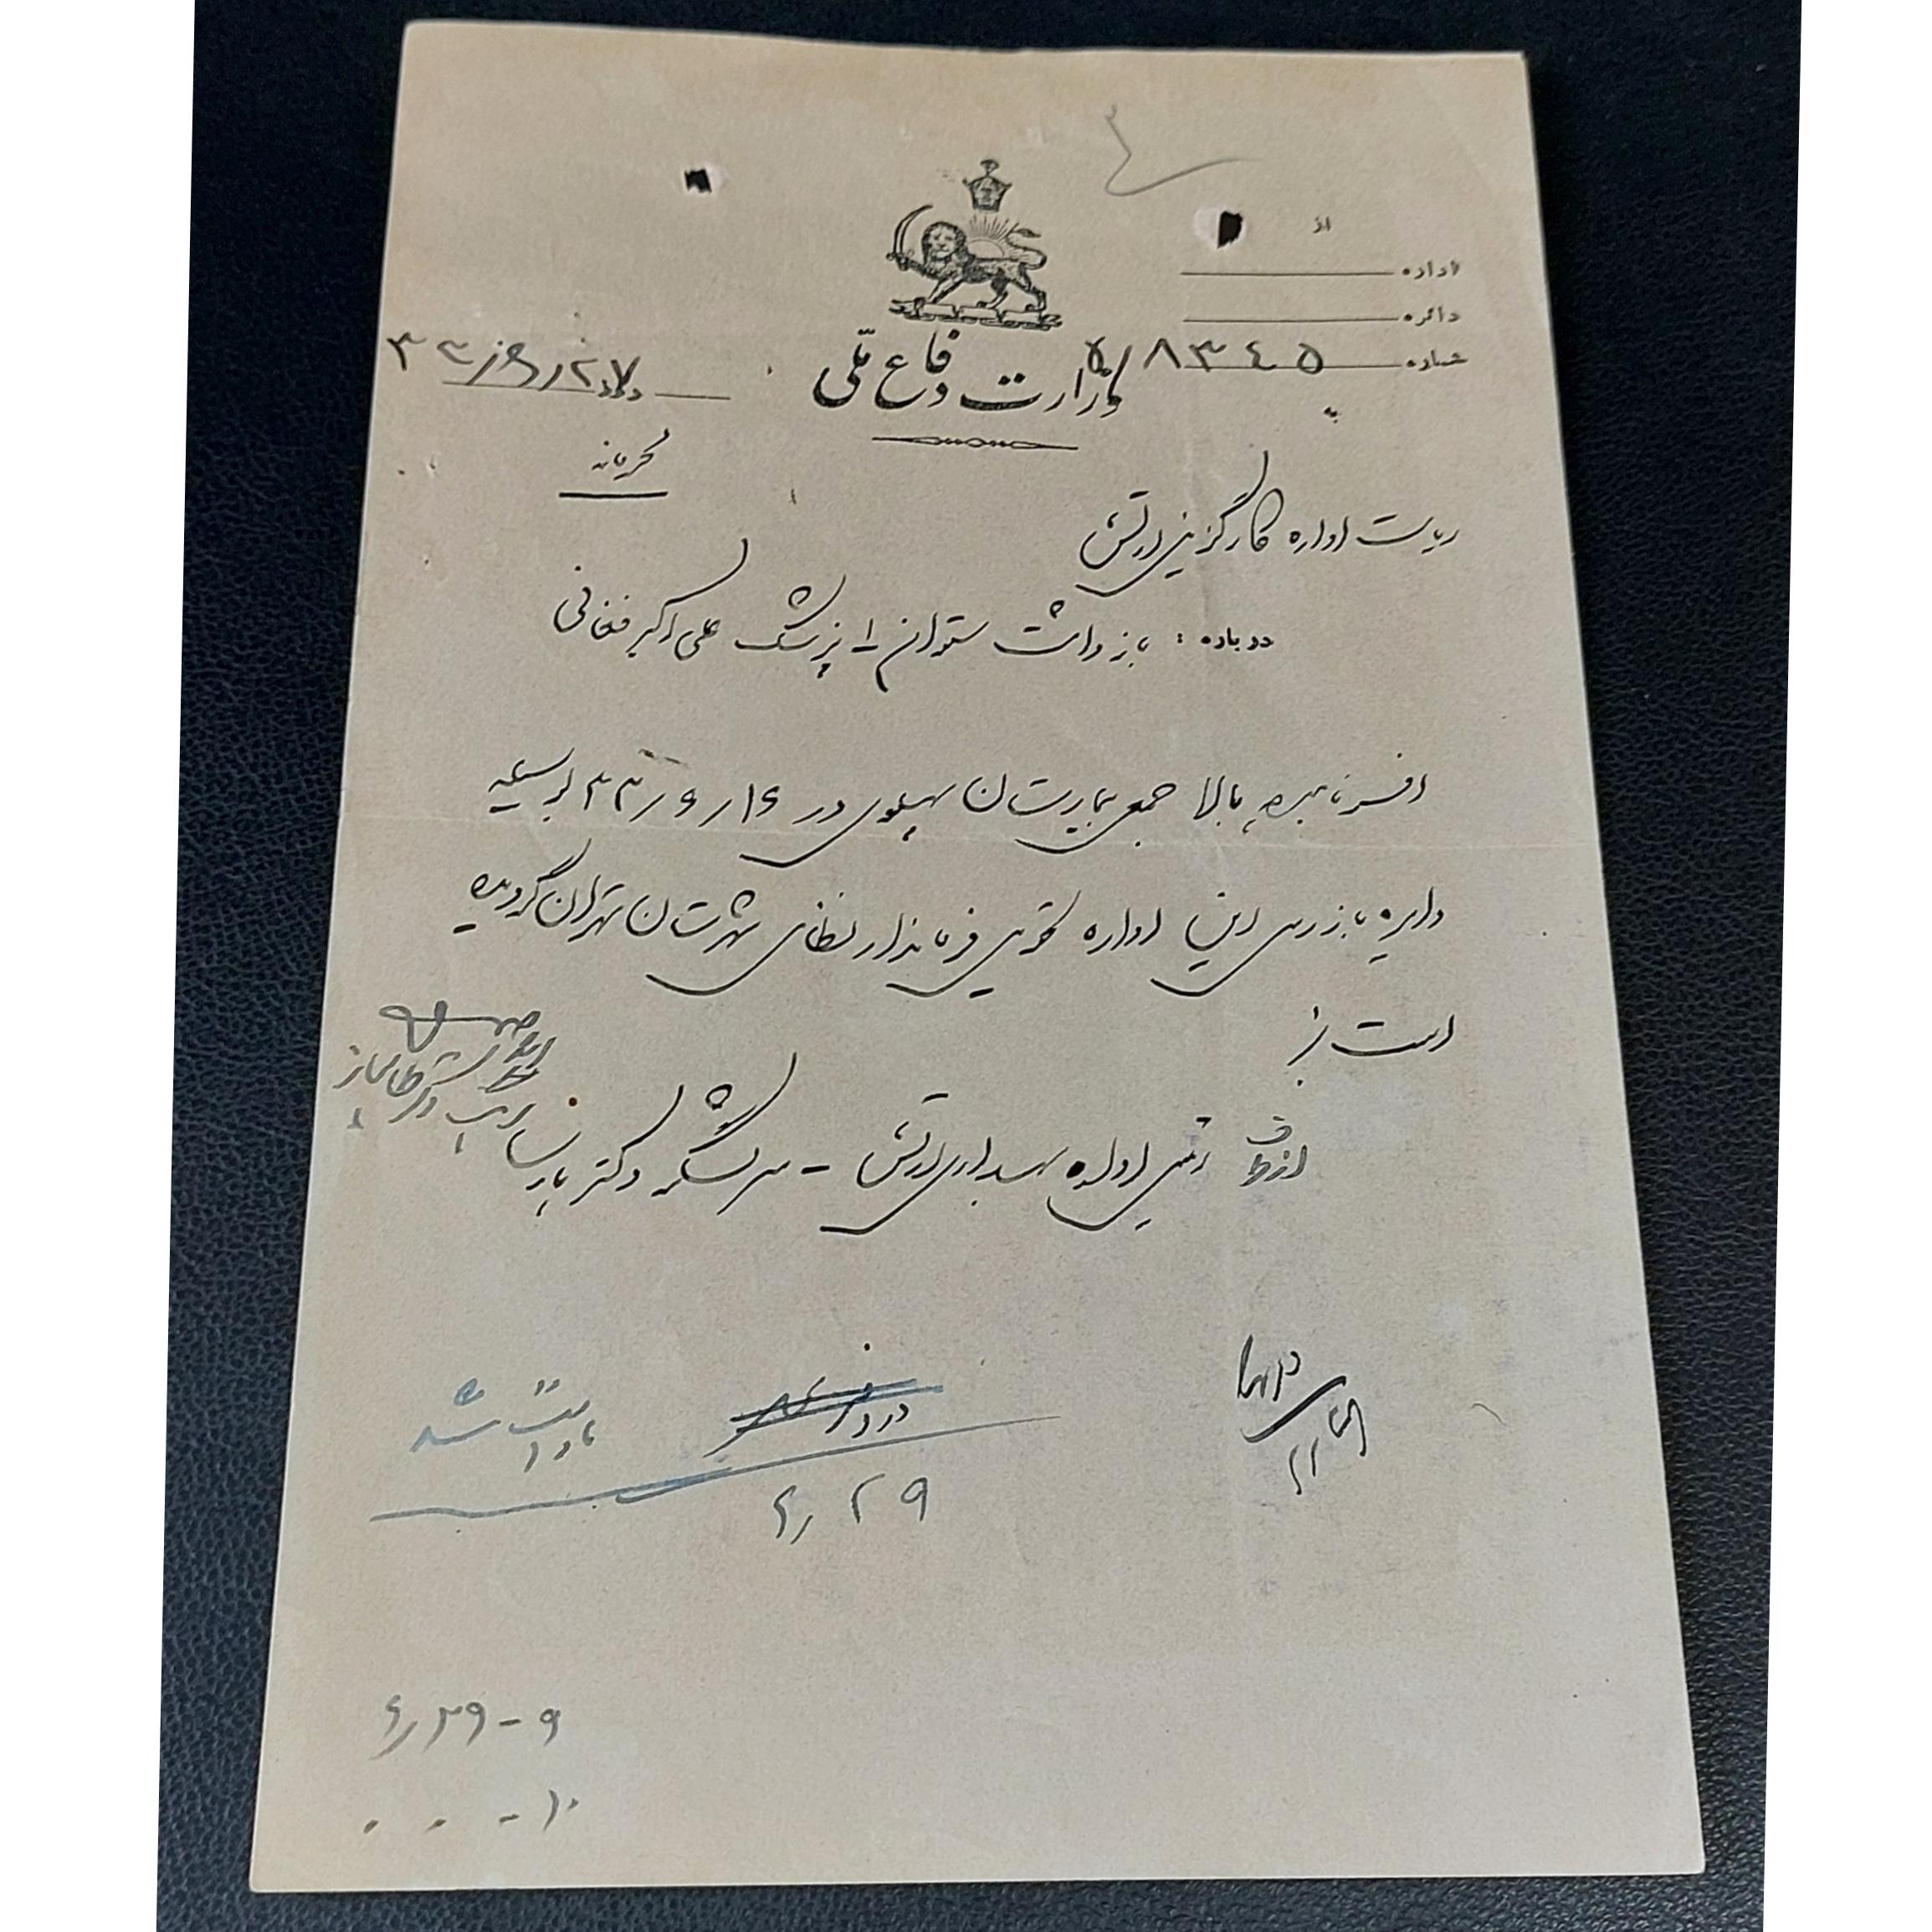 از
اداره
دائره
شماره ۸۳۴۵
وزارت دفاع ملّی
به
محرمانه
ریاست اداره کارگزینی ارتش
درباره : بازداشت ستوان ۱ پزشک علی اکبر فغانی
افسر نامبرده بالا جمعی بیمارستان پهلوی در ۱۶ر۶ر۳۳ بوسیله
دایره بازرسی این اداره تحویل فرماندار نظامی شهرستان تهران گردیده
است
از طرف رئیس اداره بهداری ارتش - سرلشگر دکتر پارسا
یادداشت شد
۶ر۲۹
۹ - ۶ر۲۹